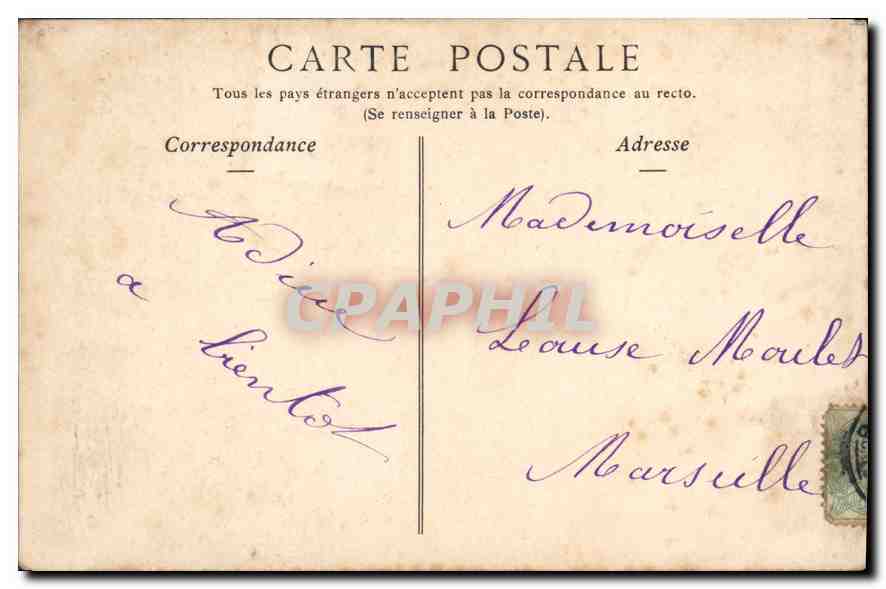 CARTE POSTALE
Tous les pays étrangers n'acceptent pas la correspondance au recto.
(Se renseigner à la Poste).
Correspondance
Adresse
a
bientot
Mademoiselle
Louise Moulet
Marseille
CPAPHIL